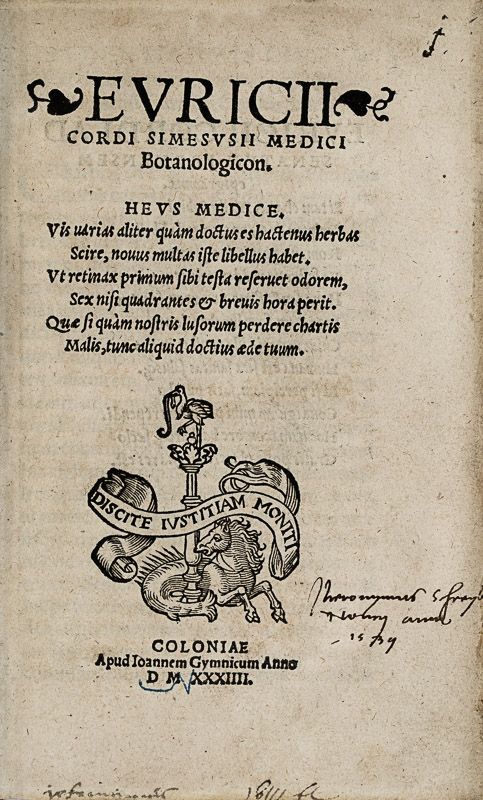 EVRICII
CORDI SIMESVSII MEDICI
Botanologicon.
HEVS MEDICE.
Vis uarias aliter quàm doctus es hactenus herbas
Scire, nouus multas iste libellus habet.
Vt retinax primum sibi testa reseruet odorem,
Sex nisi quadrantes & breuis hora perit.
Quæ si quàm nostris lusorum perdere chartis
Malis, tunc aliquid doctius æde tuum.
DISCITE IVSTITIAM MONITI
Hieronymus
COLONIAE
Apud Ioannem Gymnicum Anno
D M XXXIIII.